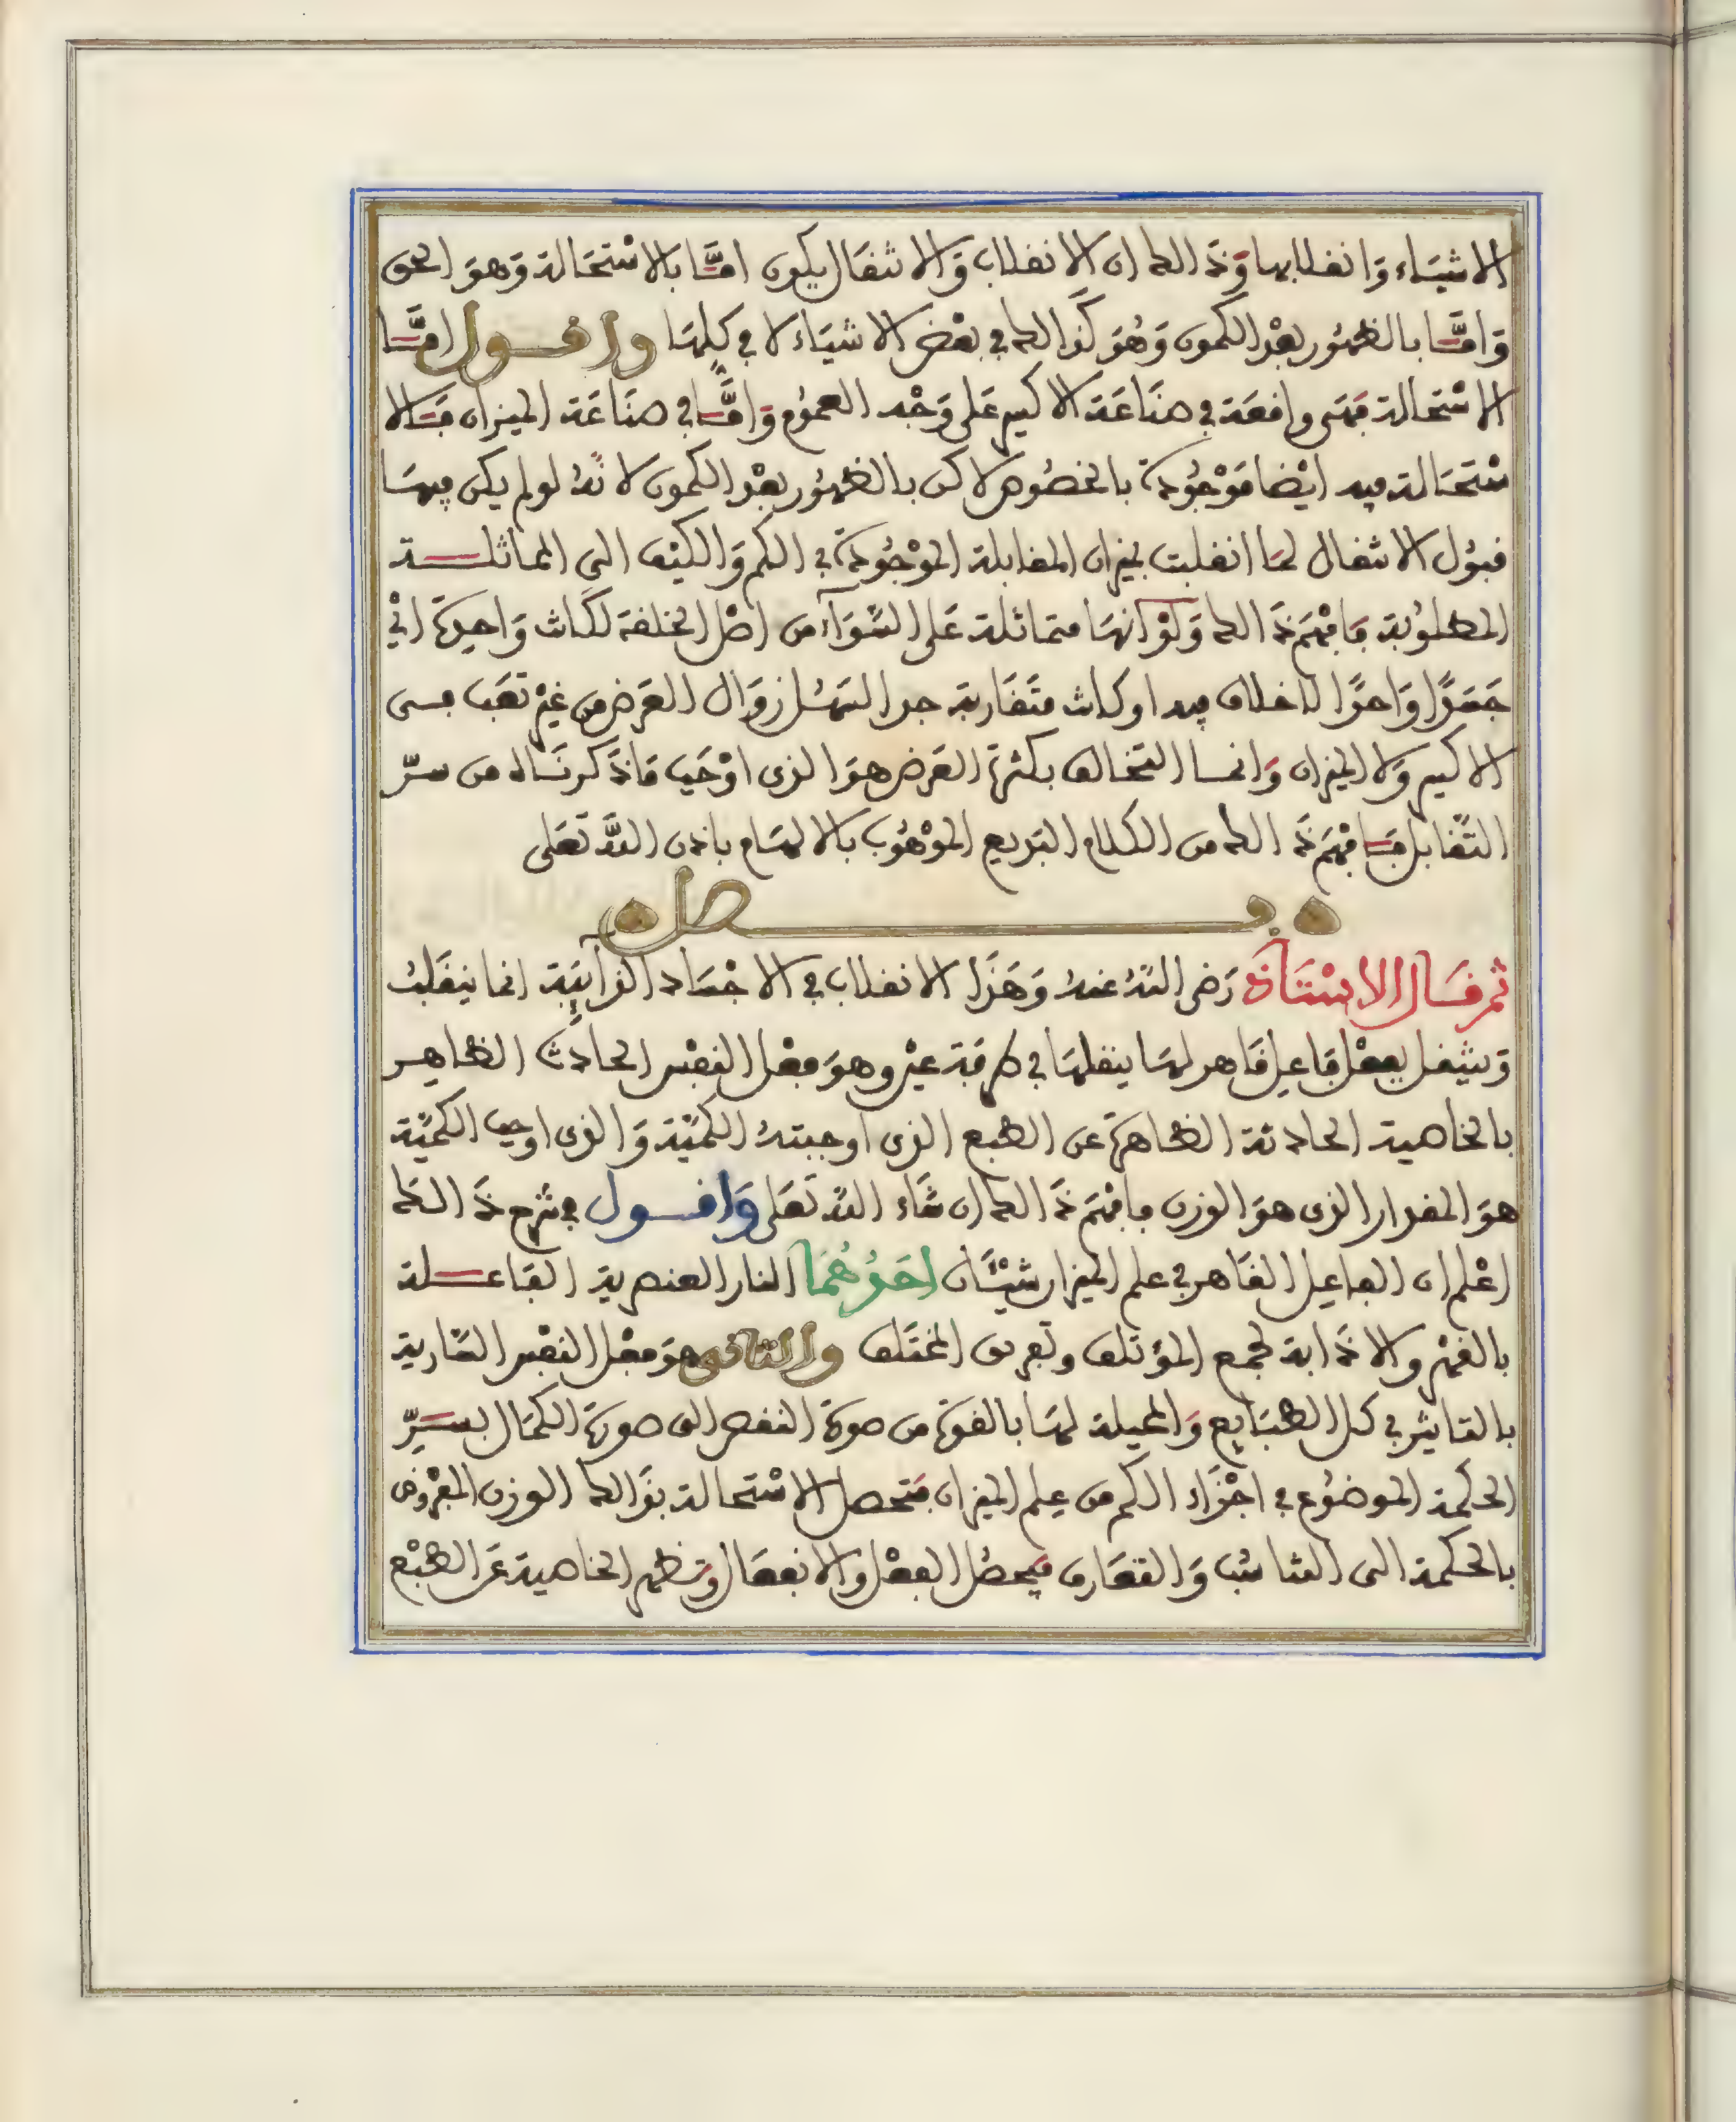 الاشيَاء وَانقلابها وَذَالك ان الانقلاب وَالانتقال يكون امَّا بالاسْتحَالة وَهوَ الحق
وَامَّا بالظهُور بعْد الكمون وَهُوَ كذالك في بعْض الاشيَاء لا في كلهَا واقول امَّا
الاسْتحالة فهَى واقعَة في صنَاعَة الاكسير عَلى وَجْه العمُوم وَامَّا في صنَاعَة الميزان فَالا
سْتحَالة فيه ايْضا مَوْجُودَة بالخصُوص لاكن بالظهُور بعْد الكمون لانهُ لو لم يكن فيهَا
قبُول الانتقال لمَا انقلبت بميزان المقابلة الموْجُودَة في الكم وَالكيْف الى المماثلة
المطلوُبة فَافهَم ذَالك وَلوْ انهَا متماثلة عَلى السَّوَآء من اصْل الخلقة لكانت وَاحِدَة اىْ
جَسَدًا وَاحدًا لا خلاف فيه او كانت متقَاربة جدا لسَهُل زوَال العَرَض من غيْر تعَب فى
الاكسير وَلا الميزان وَانما التخالف بكثرة العَرَض هوَ الذى اوْجَب مَا ذَكرنَاه من سرّ
التَّقابل فَافهَم ذَالك من الكلام البَديع الموْهُوب بالالهَام باذن اللَّه تعَلى
فصل
ثم قَال الاسْتَاذ رَضى اللهُ عنهُ وَهَذَا الانقلاب في الاجْسَاد الذآئبَة انما ينقَلبُ
وَينتقل بفعْل فَاعِل قَاهر لهَا ينقلهَا في طرفَة عيْن وهوَ فعْل النفْس الحادث الظاهِر
بالخاصية الحادثة الظاهرة عن الطبع الذى اوجبتهُ الكميَّة وَالذى اوجب الكميَّة
هوَ المقدار الذى هوَ الوزن فافهَم ذَالك ان شَاء اللَّه تَعَلى وَاقول في شرح ذَالك
اعْلم ان الفاعِل القَاهر في علم الميزان شيْئَان احَدُهُمَا النار العنصرية الفاعلة
بالقهْر والاذَابة لجمع المؤتلف وتفريق المختَلف والثانى هوَ فعْل النفْس السَّارية
بالتاثير في كل الطبَايع وَالمحيلة لهَا بالقوة من صورَة النقص الى صورَة الكمَال بسِرّ
الحكمة الموضُوع في اجْزَاء الكم من عِلم الميزان فتحصل الاسْتحالة بذَالك الوزن المفْرُوض
بالحكمة الى التناسُب وَالتعَارف فيَحصُل الفعْل والانفعَال وتظهر الخاصية عَن الطبْع